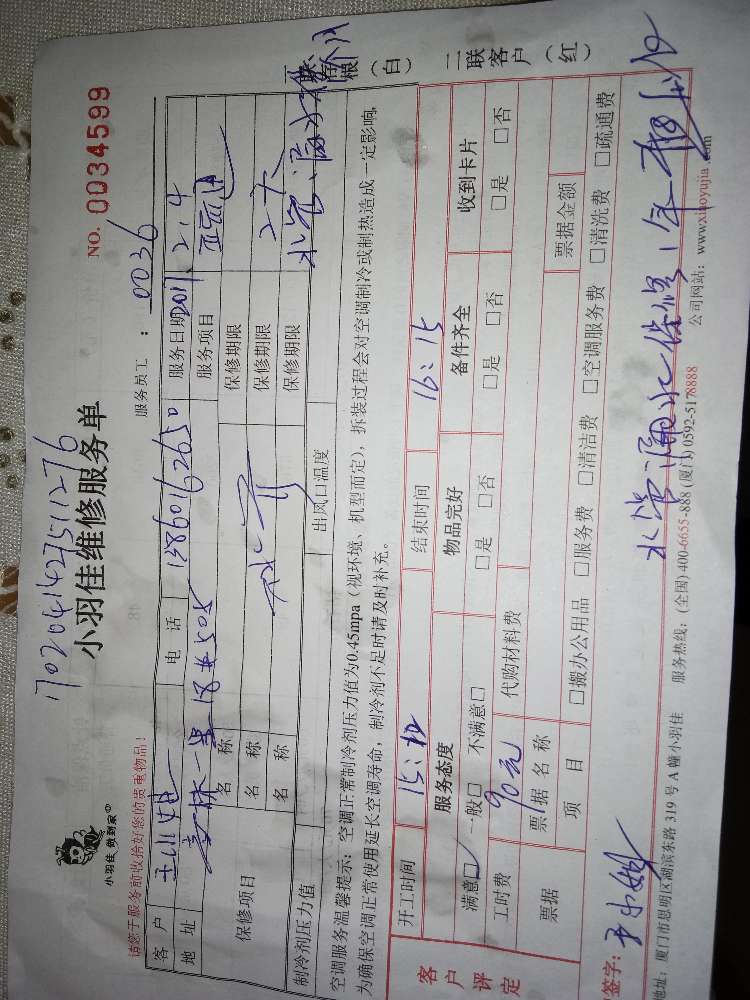 1702041427511276
小羽佳 做到家
小羽佳维修服务单
NO. 0034599
请您于服务前收拾好您的贵重物品!
服务员工 : 0036
客户
电话 13860162650
服务日期 2017.2.4
地址
服务项目
保修项目
名称
保修期限
名称
保修期限
名称
保修期限
制冷剂压力值
出风口温度
空调服务温馨提示:空调正常制冷剂压力值为0.45mpa(视环境、机型而定),拆装过程会对空调制冷或制热造成一定影响,
为确保空调正常使用延长空调寿命,制冷剂不足时请及时补充。
(白)
二联客户(红)
客户评定
开工时间
结束时间 16:15
服务态度
物品完好
备件齐全
收到卡片
满意□ 一般□ 不满意□
□是 □否
□是 □否
□是 □否
工时费 90元
代购材料费
票据
票据名称
票据金额
项目
□搬办公用品 □服务费 □清洁费 □空调服务费 □清洗费 □疏通费
签字:
水管漏水保修1年
地址:厦门市思明区湖滨东路319号A幢小羽佳
服务热线:(全国)400-6655-888(厦门)0592-5178888
公司网站:www.xiaoyujia.com